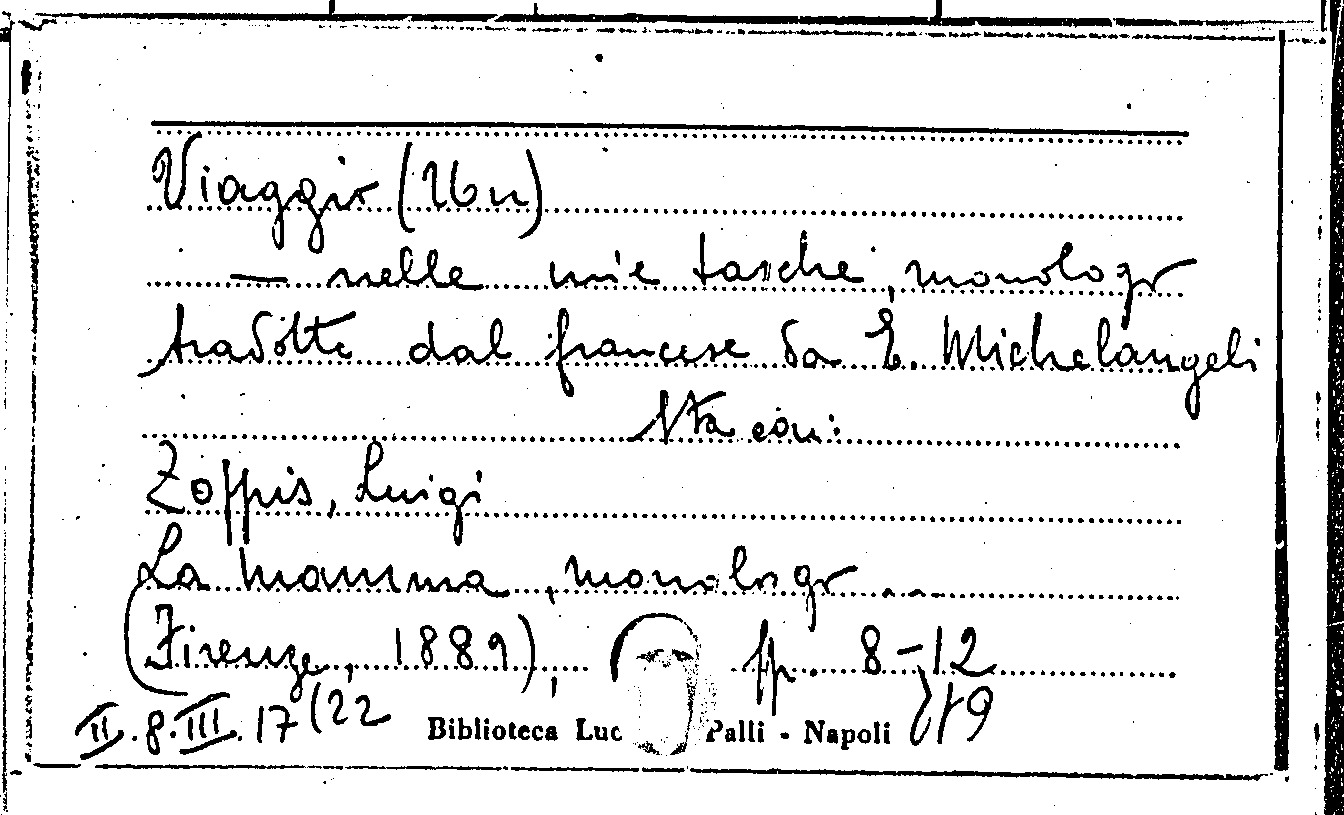 Viaggio (Un)
— nelle mie tasche, monologo
tradotto dal francese da E. Michelangeli
Sta con:
Zoppis, Luigi
La mamma, monologo ...
(Firenze, 1889), pp. 8-12
II. 8. III. 17 (22
Biblioteca Luc Palli - Napoli